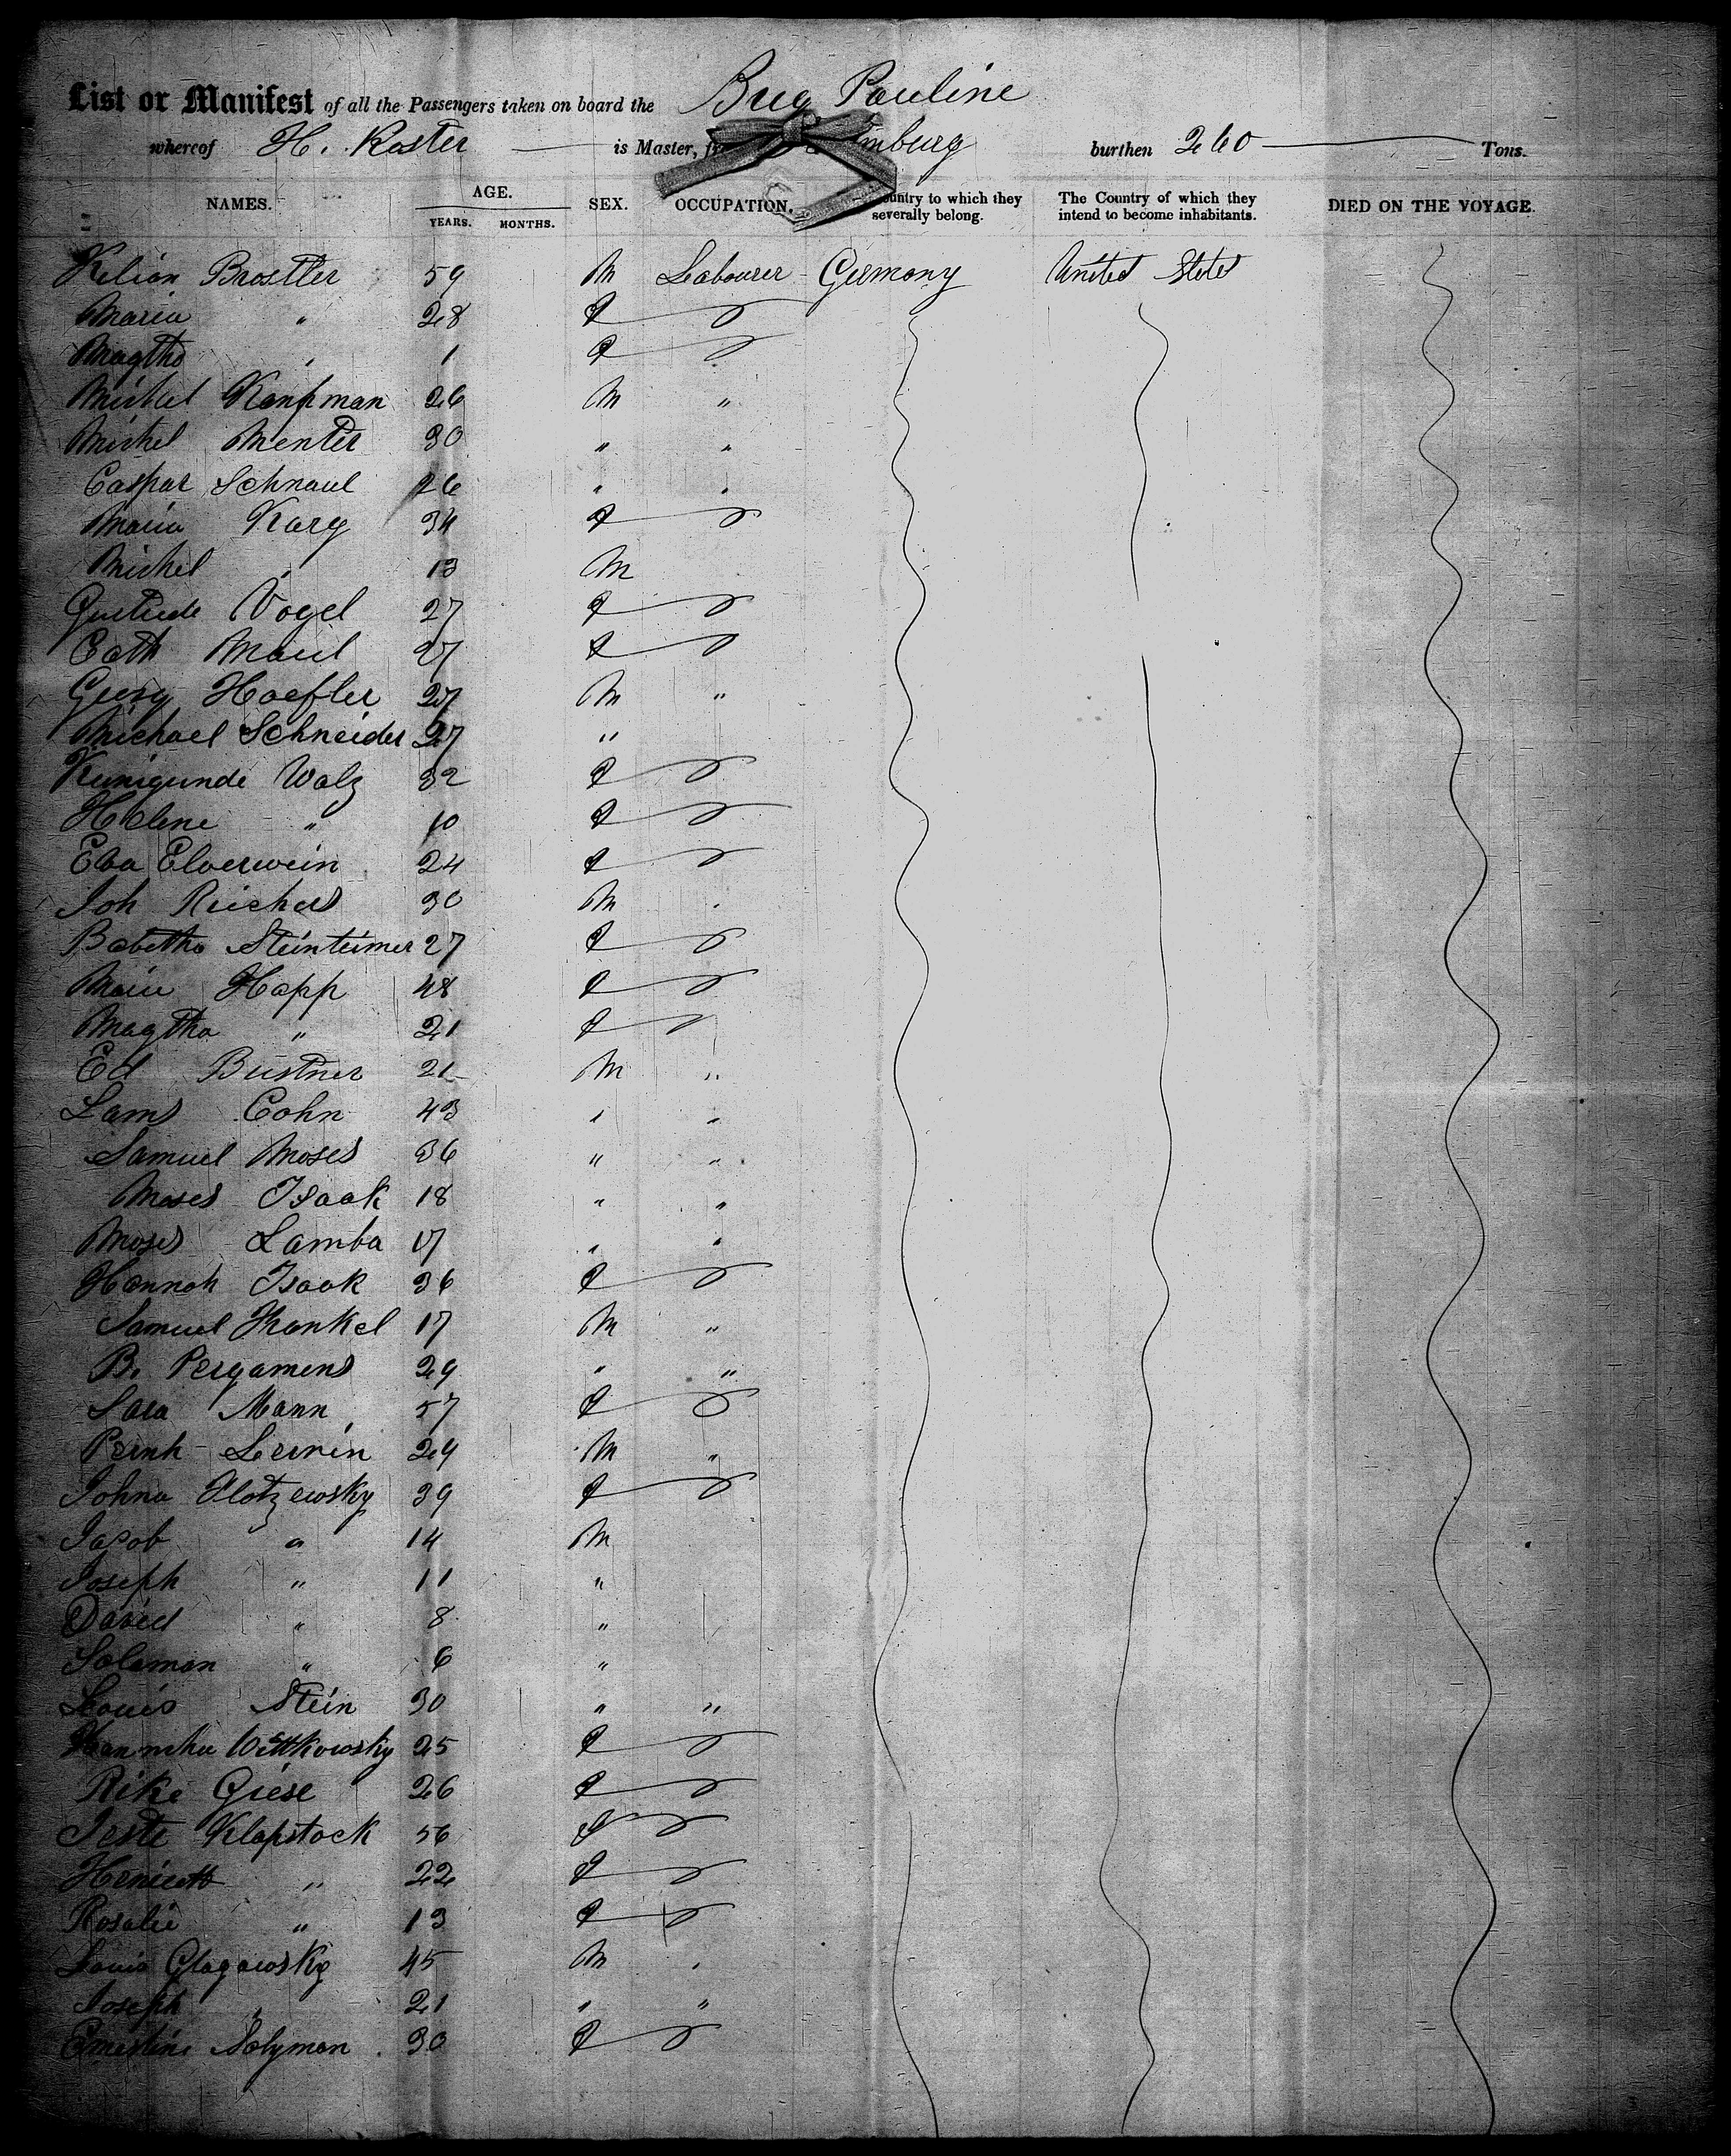 List or Manifest of all the Passengers taken on board the Brig Pauline
whereof H. Koster is Master, burthen 260 Tons.
NAMES. AGE. SEX. OCCUPATION. Country to which they severally belong. The Country of which they intend to become inhabitants. DIED ON THE VOYAGE.
YEARS. MONTHS.
Kilian Brostler 59 M Labourer Germany United States
Maria " 28 F
Magtha " 1 F
Michel Kaufman 26 M "
Michel Menter 30 " "
Caspar Schnaul 26 " "
Maria Karg 34 F
Michel " 13 M
Gertrude Vogel 27 F
Cath Maul 27 F
Georg Hoefler 27 M "
Michael Schneider 27 "
Kunigunde Walz 32 F
Helene " 10 F
Eva Elverwein 24 F
Joh 30 M "
Babetha Steinteimer 27 F
Marie Happ 48 F
Magtha " 21 F
Ed Bustner 21 M "
Cohn 43 " "
Samuel Moses 36 " "
Moses Isaak 18 " "
Moses Lamba 17 " "
Hannah Isaak 36 F
Samuel Frankel 17 M "
B. Pergamens 29 " "
Sara Mann 57 F
M "
Johna Slotzewsky 39 F
Jacob " 14 M
Joseph " 11 "
David " 8 "
Soloman " 6 "
Louis Stein 30 " "
Wittkowsky 25 F
Rike Giese 26 F
Jette Klapstock 56 F
Henriette " 22 F
Rosalie " 13 F
Louis Glogowsky 45 M "
Joseph " 21 " "
Ernestine Solyman 30 F